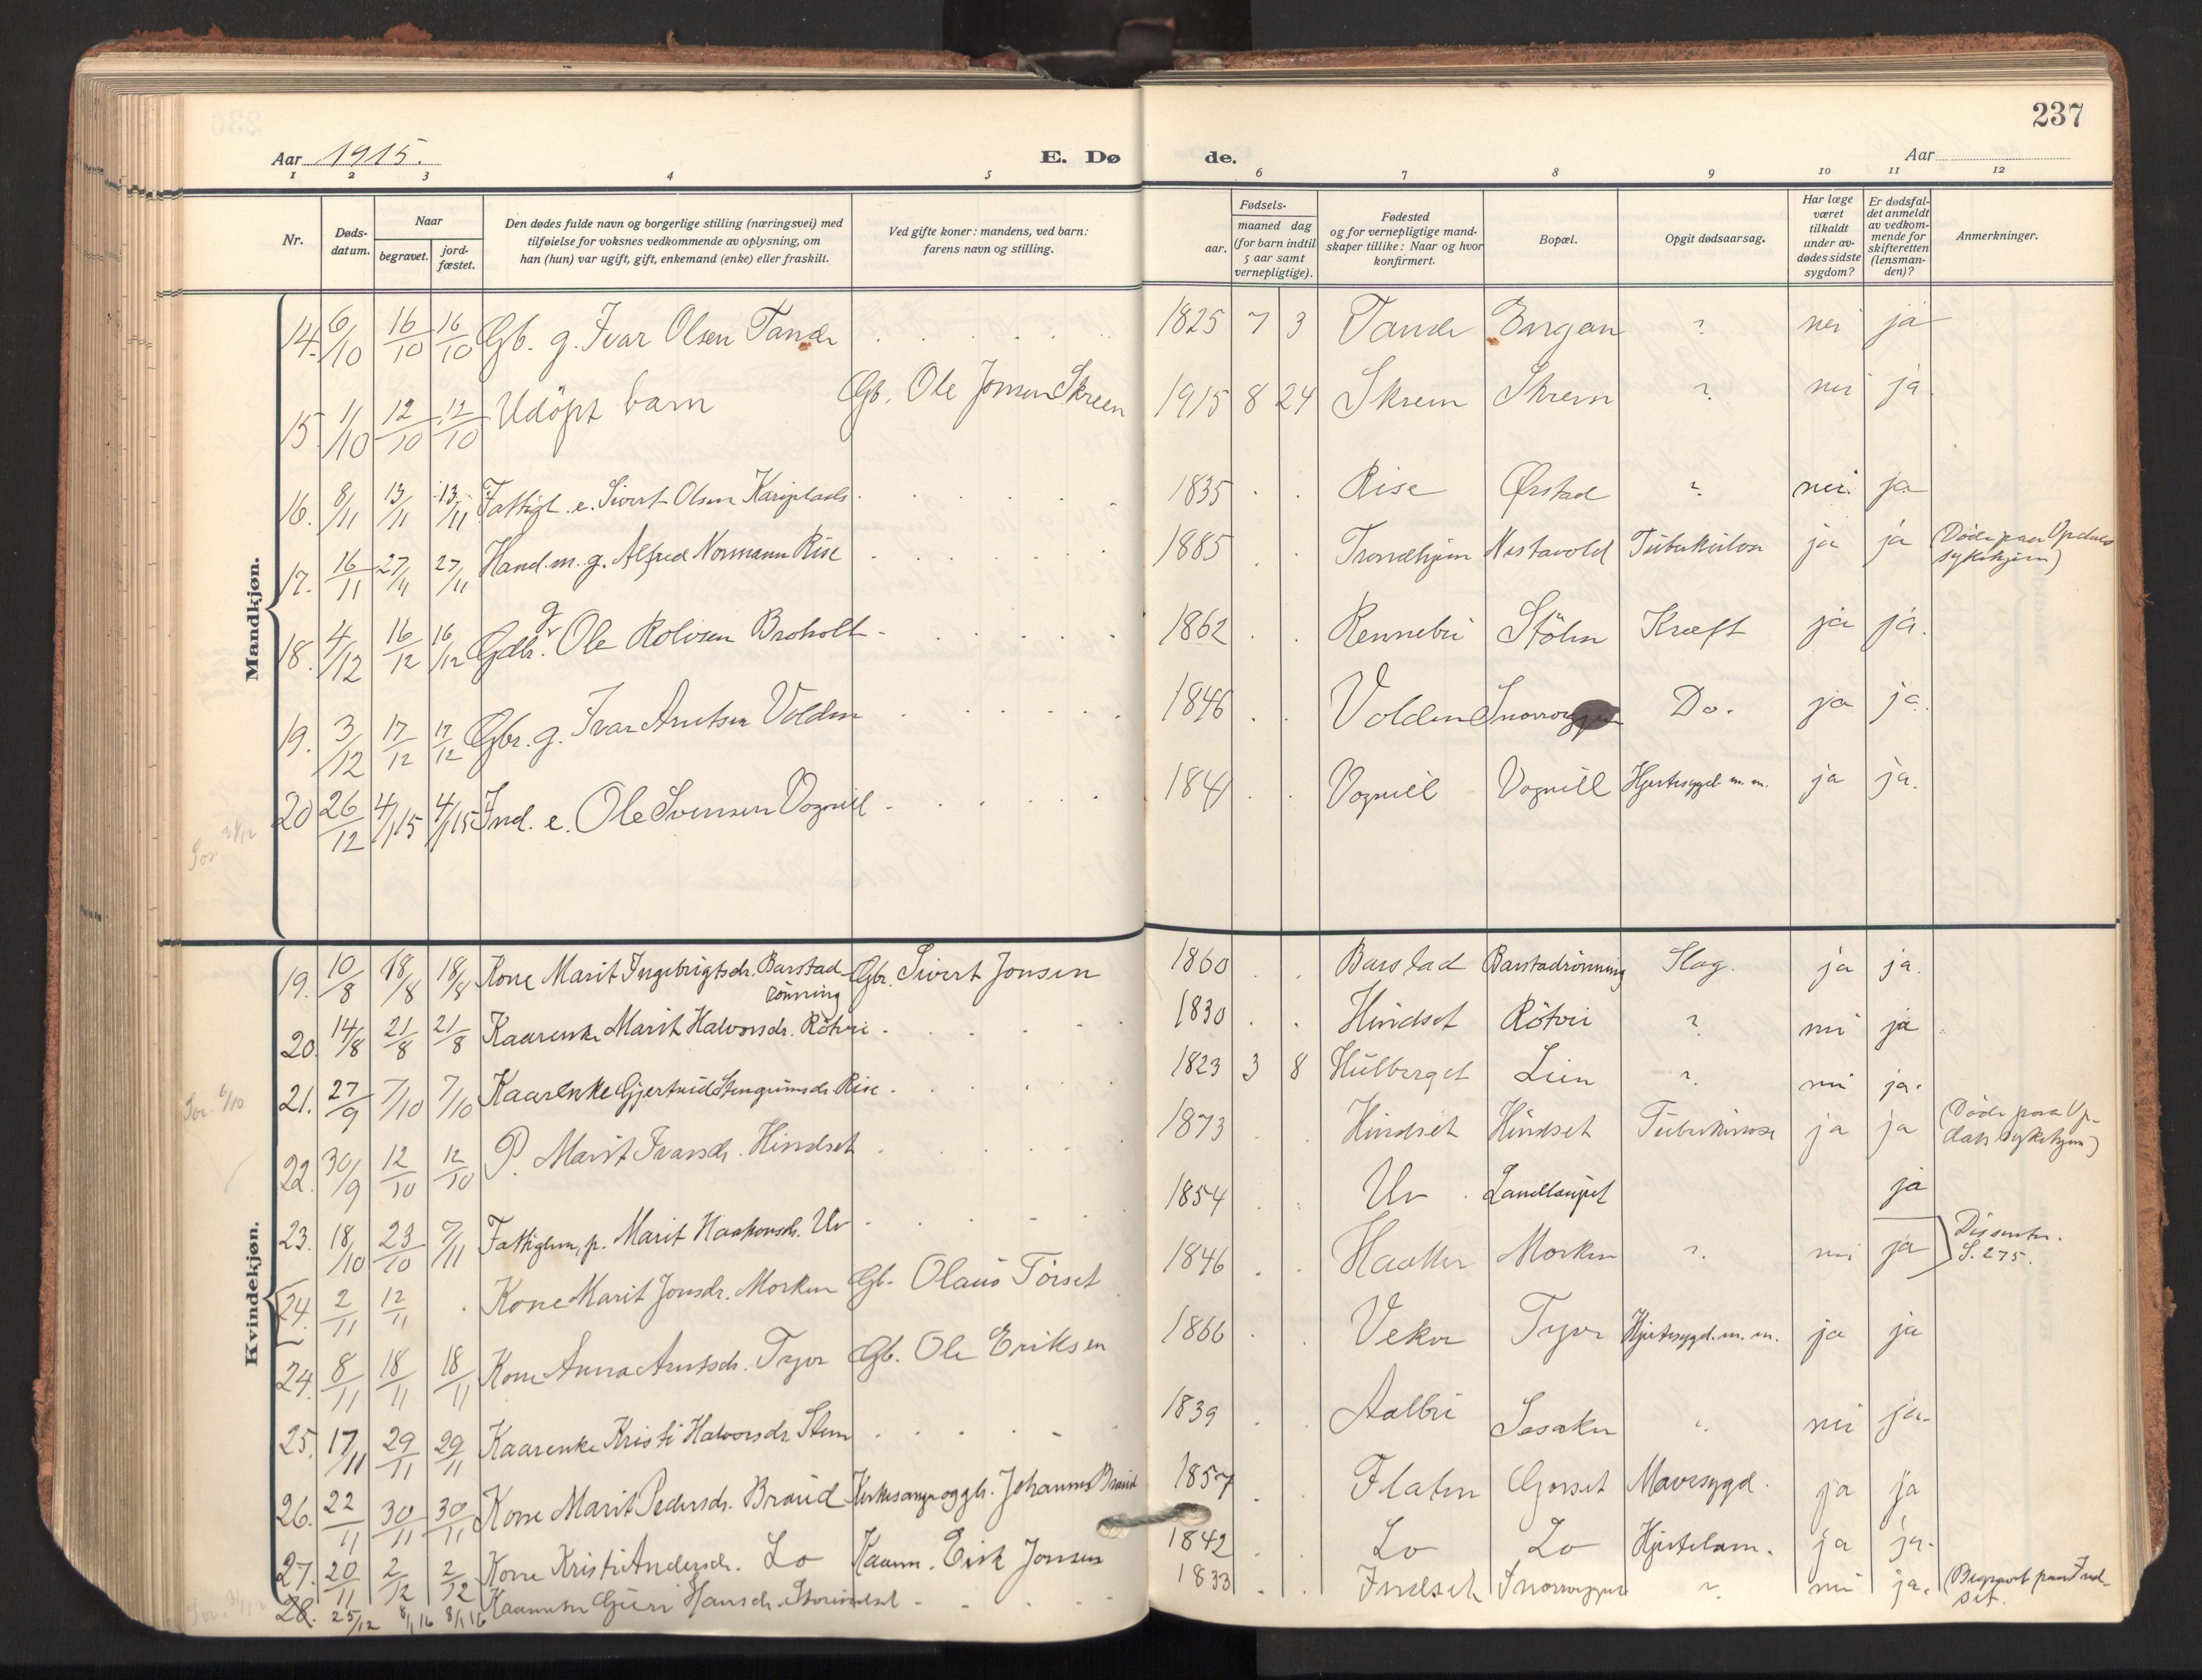 237
Aar 1915. E. Dø de. Aar
1 2 3 4 5 6 7 8 9 10 11 12
Nr.
Døds-datum.
Naar
begravet.
jord-fæstet.
Den dødes fulde navn og borgerlige stilling (næringsvei) med
tilføielse for voksnes vedkommende av oplysning, om
han (hun) var ugift, gift, enkemand (enke) eller fraskilt.
Ved gifte koner: mandens, ved barn:
farens navn og stilling.
Fødsels-
aar.
maaned dag
(for barn indtil
5 aar samt
vernepligtige).
Fødested
og for vernepligtige mand-
skaper tillike: Naar og hvor
konfirmert.
Bopæl.
Opgit dødsaarsag.
Har læge
været
tilkaldt
under av-
dødes sidste
sygdom?
Er dødsfal-
det anmeldt
av vedkom-
mende for
skifteretten
(lensman-
den)?
Anmerkninger.
Mandkjøn.
14. 6/10 16/10 16/10 Gb. g. Ivar Olsen Tande 1825 7 3 Tande Bergan ? nei ja
15. 1/10 12/10 12/10 Udöpt barn Gb. Ole Jonsen Skreen 1915 8 24 Skreen Skreen ? nei ja.
16. 8/11 13/11 13/11 Fattigl. e. Sivert Olsen Kariplads 1835 Rise Ørstad ? nei. ja
17. 16/11 27/11 27/11 Hand.m. g. Alfred Normann Rise 1885 Trondhjem Nestavold Tuberkulose ja ja (Döde paa Opdals
sykehjem)
18. 4/12 16/12 16/12 Gdbr. g Ole Rolvsen Broholt 1862 Rennebu Stölen Kræft ja ja.
19. 3/12 17/12 17/12 Gbr. g. Ivar Arntsen Volden 1846 Volden Snorroeggen Do. ja ja.
20 26/12 4/1 15 4/1 15 Ind. e. Ole Svensen Vognill 1841 Vognill Vognill Hjertesygd. m. m. ja ja.
31/12
Kvindekjøn.
19. 10/8 18/8 18/8 Kone Marit Ingebrigtsdr. Barstad-
rönning Gbr. Sivert Jonsen 1860 Barstad Barstadrönning Slag. ja ja.
20. 14/8 21/8 21/8 Kaarenke Marit Halvorsdr. Rötvei 1830 Hindset Rötvei ? nei ja
21. 27/9 7/10 7/10 Kaarenke Gjertrud Stengrimsdr. Rise 1823 3 8 Hulberget Lien ? nei ja.
22. 30/9 12/10 12/10 P. Marit Ivarsdr. Hindset 1873 Hindset Hindset Tuberkulose ja ja (Döde paa Op-
dals sykehjem)
23. 18/10 23/10 7/11 Fattiglem, p. Marit Haakonsdr. Uv 1854 Uv Landlaupet ja
24. 2/11 12/11 Kone Marit Jonsdr. Morken Gb. Olaus Torset 1846 Haaker Morken ? nei ja Dissenter.
S. 275.
24. 8/11 18/11 18/11 Kone Anna Arntsdr. Tyvr Gb. Ole Eriksen 1866 Vekve Tyvr Hjertesygd. m. m. ja ja
25. 17/11 29/11 29/11 Kaarenke Kristi Halvorsdr. Stuen 1839 Aalbu nei ja.
26. 22/11 30/11 30/11 Kone Marit Pedersdr. Braud Kirkesanger og gb. Johannes Braud 1857 Flaten Gorset Mavesygd. ja ja
27. 20/11 2/12 2/12 Kone Kristi Andersdr. Lo Kaarm. Eirik Jonsen 1842 Lo Lo Hjertelam. ja ja.
28. 25/12 8/1 16 8/1 16 Guri Hansdr. Storindset 1833 Indset Snorroeggen ? nei ja. (Begravet paa Ind-
set.